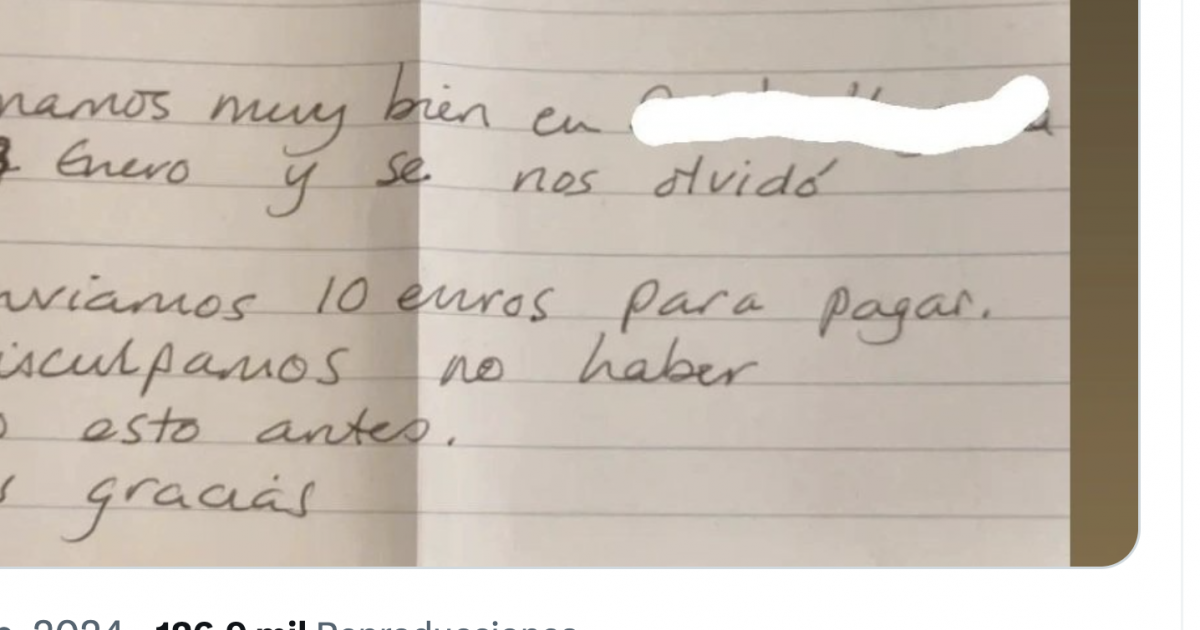 namos muy bien en
Enero y se nos olvidó
nviamos 10 euros para pagar.
isculpamos no haber
o esto antes.
s gracias
2024 186,9 mil Reproducciones